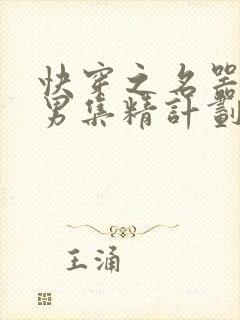 快穿之名器
男集精計劃
王涌